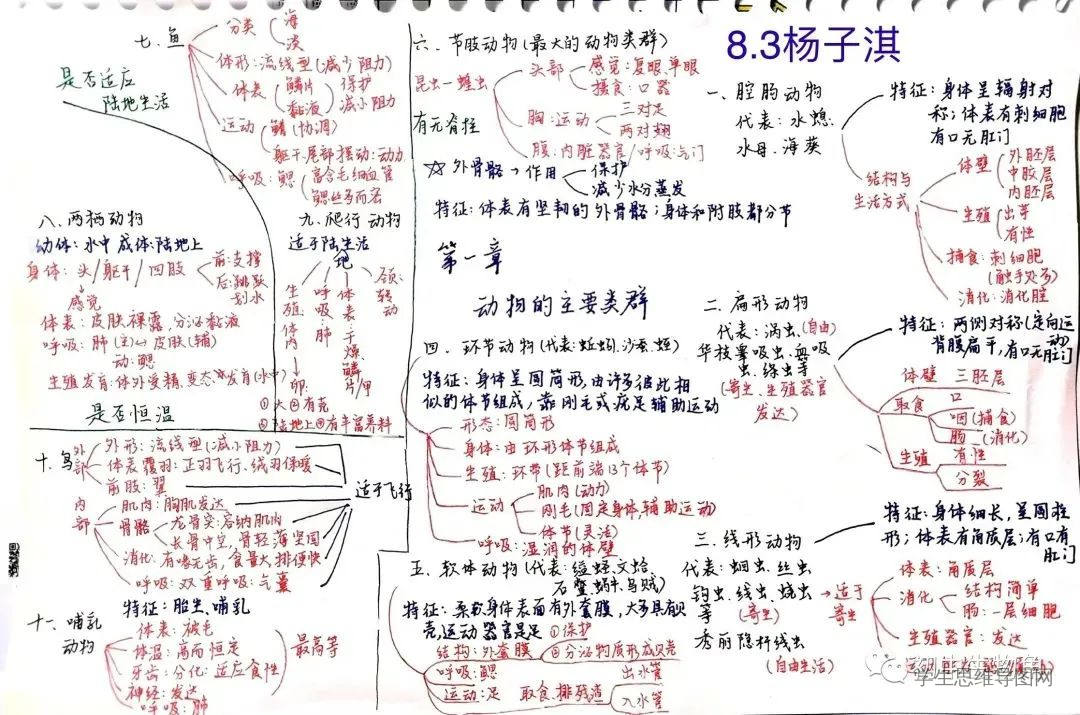 8.3杨子淇
第一章
动物的主要类群
一、腔肠动物
代表：水螅、
水母、海葵
特征：身体呈辐射对
称；体表有刺细胞
有口无肛门
结构与
生活方式
体壁
外胚层
中胶层
内胚层
生殖
出芽
有性
捕食：刺细胞
（触手处多）
消化：消化腔
二、扁形动物
代表：涡虫、(自由)
华枝睾吸虫、血吸
虫、绦虫等
（寄生、生殖器官
发达）
特征：两侧对称(定向运动)
背腹扁平，有口无肛门
体壁 三胚层
取食 口
咽（捕食）
肠（消化）
生殖 有性
分裂
三、线形动物
代表：蛔虫、丝虫
钩虫、线虫、蛲虫
等 （寄生）
秀丽隐杆线虫
（自由生活）
特征：身体细长，呈圆柱
形；体表有角质层；有口有
肛门
适于
寄生
体表：角质层
消化
结构简单
肠：一层细胞
生殖器官：发达
四、环节动物（代表：蚯蚓、沙蚕、蛭）
特征：身体呈圆筒形，由许多彼此相
似的体节组成，靠刚毛或疣足辅助运动
形态：圆筒形
身体：由环形体节组成
生殖：环带（距前端13个体节）
运动
肌肉（动力）
刚毛（固定身体，辅助运动）
体节（灵活）
呼吸：湿润的体壁
五、软体动物（代表：缢蛏、文蛤、
石鳖、蜗牛、乌贼）
特征：柔软身体表面有外套膜，大多具有贝
壳，运动器官是足
结构：外套膜
①保护
②分泌物质形成贝壳
呼吸：鳃
运动：足
取食、排残渣
出水管
入水管
六、节肢动物（最大的动物类群）
昆虫—蝗虫
有无脊柱
头部
感觉：复眼、单眼
摄食：口器
胸：运动
三对足
两对翅
腹：内脏器官/呼吸：气门
☆外骨骼→作用
保护
减少水分蒸发
特征：体表有坚韧的外骨骼；身体和附肢都分节
七、鱼
是否适应
陆地生活
分类
海
淡
体形：流线型（减少阻力）
体表
鳞片 保护
黏液 减小阻力
运动
鳍（协调）
躯干、尾部摆动：动力
呼吸：鳃
富含毛细血管
鳃丝多而密
八、两栖动物
幼体：水中 成体：陆地上
身体：头/躯干/四肢
感觉
前：支撑
后：跳跃
划水
体表：皮肤裸露，分泌黏液
呼吸：肺（主） 皮肤（辅）
幼：鳃
生殖发育：体外受精、变态发育（水中）
九、爬行动物
适于陆生活
地
生殖：体内
呼吸：肺
体表：干燥、鳞片/甲
颈：转动
卵
①大②有壳
③陆地上④有丰富养料
是否恒温
十、鸟
外部
外形：流线型（减小阻力）
体表覆羽：正羽飞行、绒羽保暖
前肢：翼
内部
肌肉：胸肌发达
骨骼
龙骨突：容纳肌肉
长骨中空，骨轻薄坚固
消化：有喙无齿，食量大，排便快
呼吸：双重呼吸：气囊
适于飞行
十一、哺乳
动物
特征：胎生、哺乳
体表：被毛
体温：高而恒定
牙齿：分化：适应食性
神经：发达
呼吸：肺
最高等
学生思维导图网